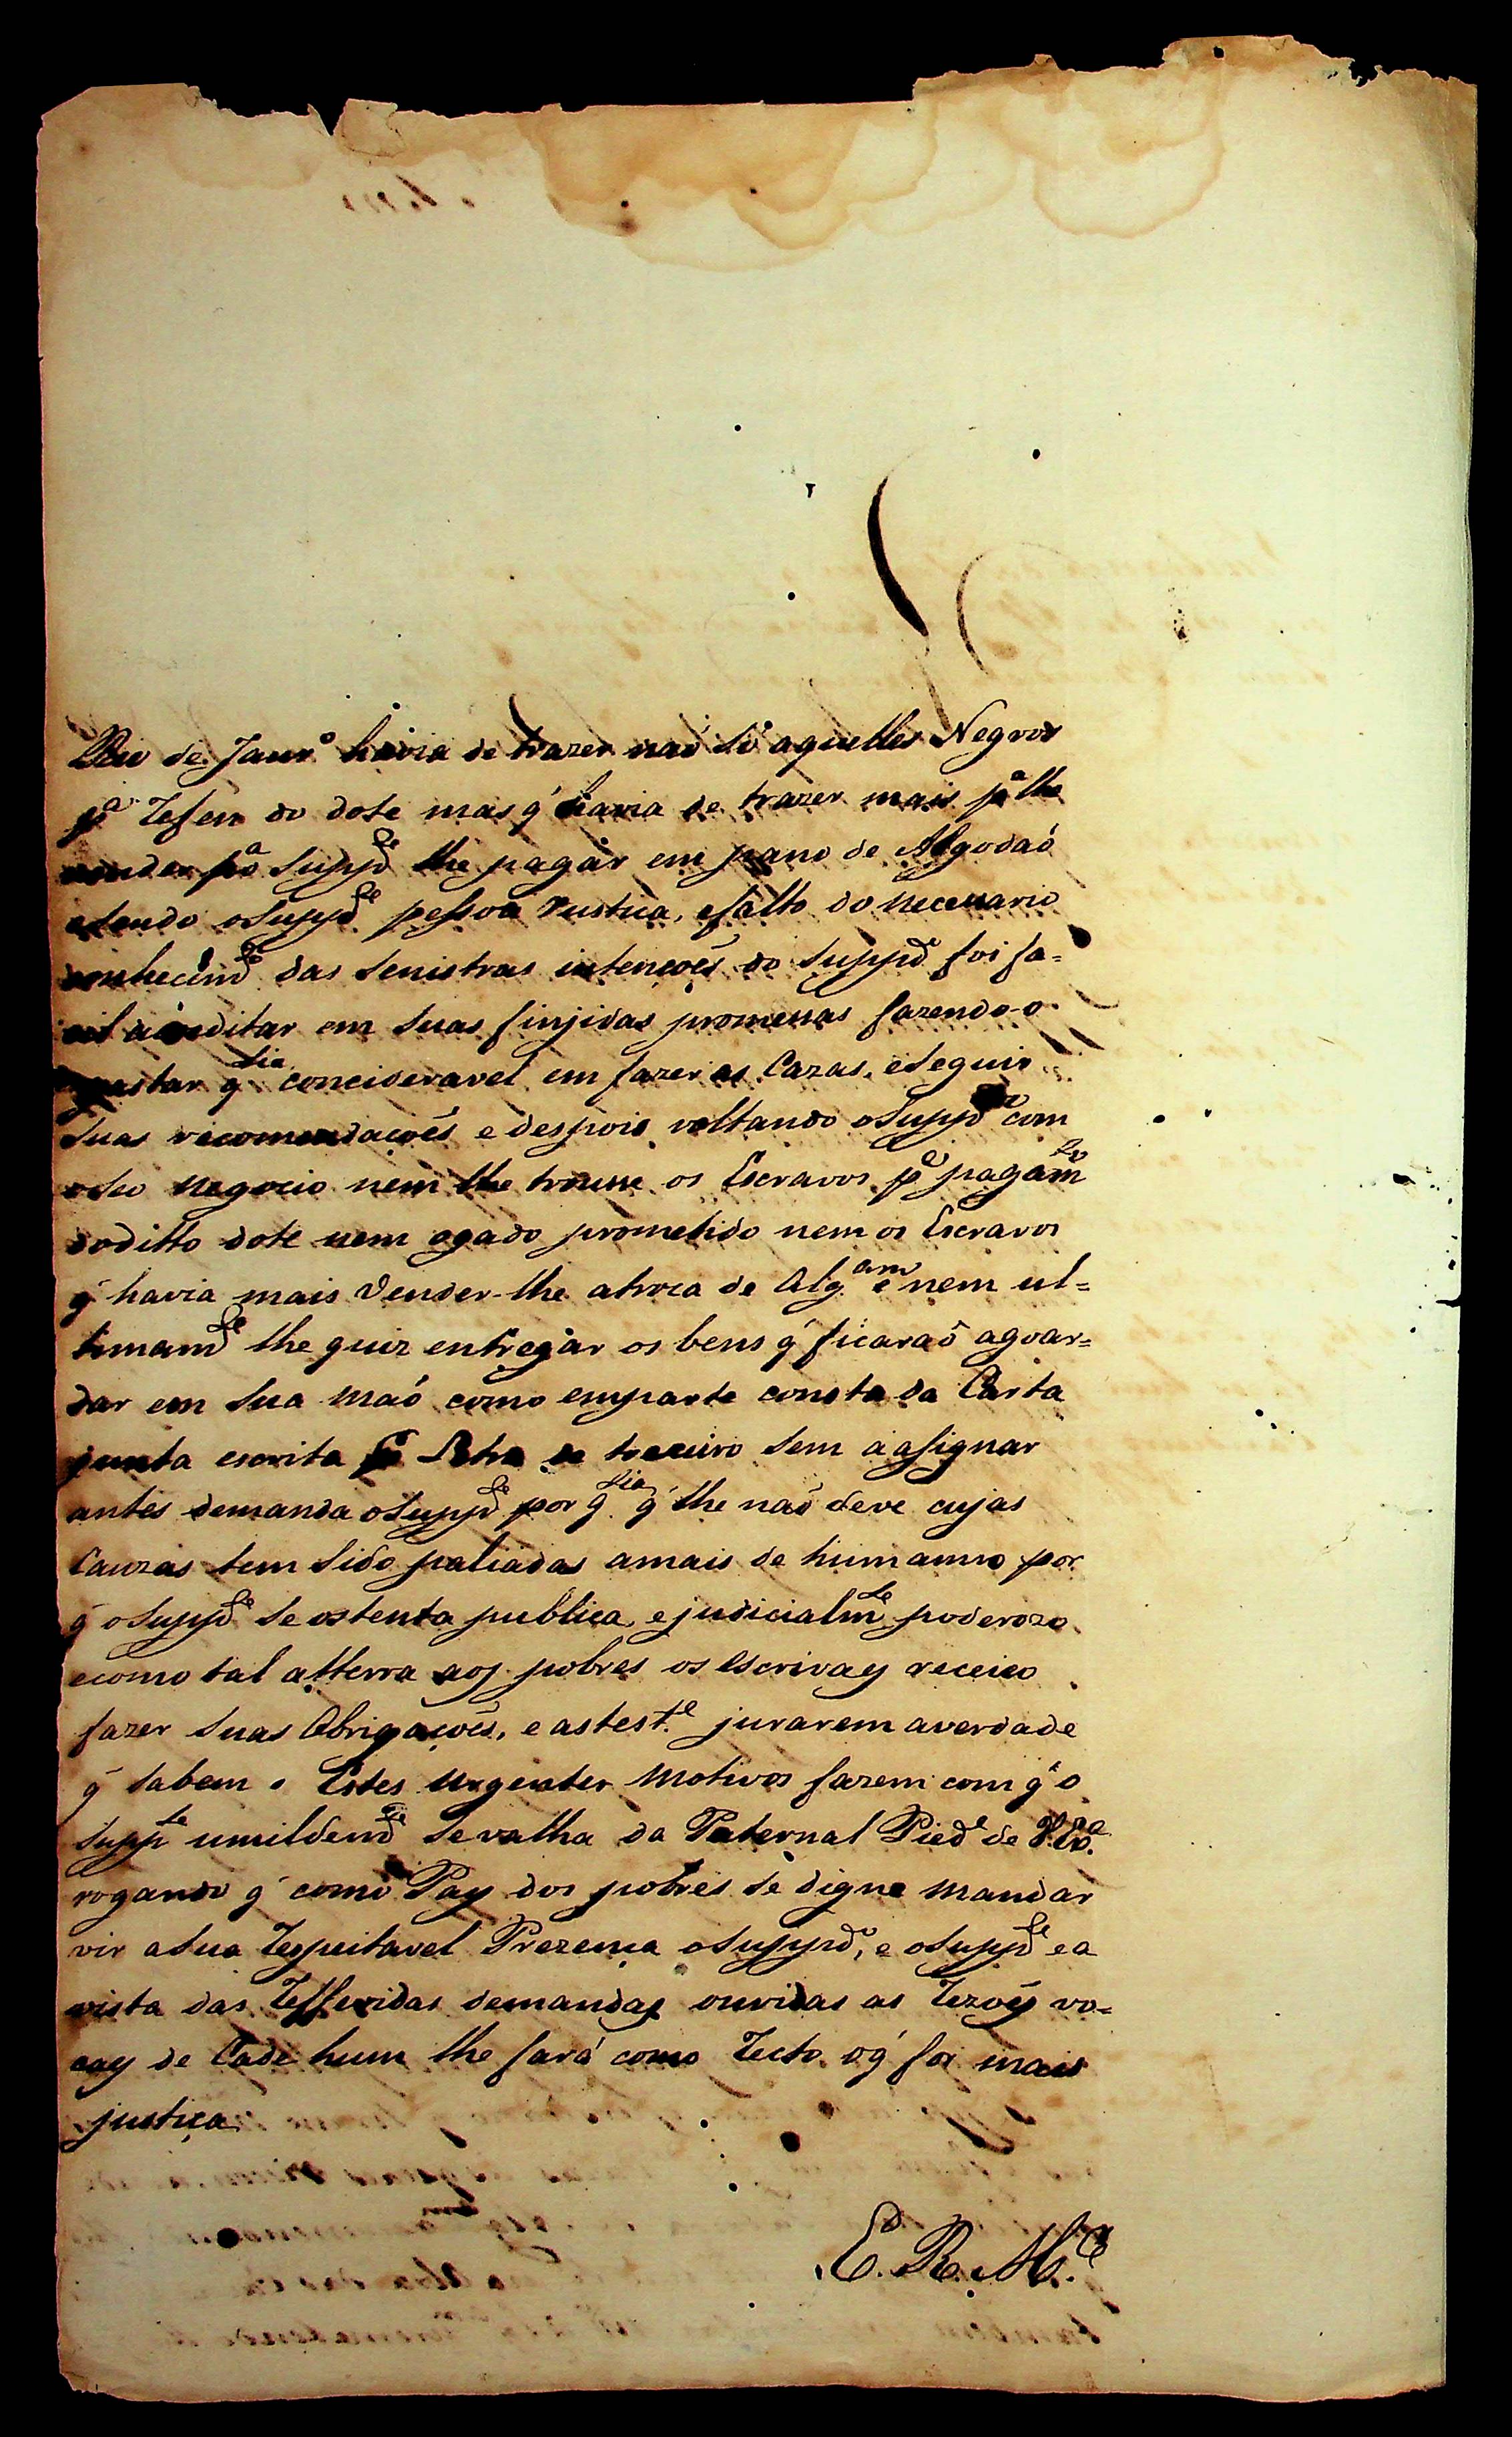 Rio de Janr.o havia de trazer naó só aquelles Negros
p.a Refen do dote mas q̃ havia de trazer mais p.a lhe
vender p.a o Supp.de lhe pagar em pano de Algodaó
e sendo o Supp.de pessoa rustica, e falto do necessario
conhecim.de das senistras intençoẽs do Supp.do foi fa=
cil acreditar em suas finjidas promessas fazendo-o
gastar q.tia concideravel em fazer as Cazas, e seguir
suas recomendaçoẽs e despois voltando o Supp.do com
o seo negocio nem lhe trousse os Escravos p.a pagam.to
do ditto dote nem o gado prometido nem os Escravos
q̃ havia mais Vender-lhe a troca de Alg.am e nem ul=
timam.de lhe quiz entregar os bens q̃ ficaraõ a goar=
dar em sua maó como em parte consta da Carta
junta escrita p.r Letra de treceiro sem a assignar
antes demanda o Supp.de por q.tia q̃ lhe naó deve cujas
Cauzas tem sido paliadas a mais de hum anno por
q̃ o Supp.de se ostenta publica, e judicialm.te poderozo
e como tal atterra aos pobres os escrivaẽs receião
fazer suas Obrigaçoẽs, e as test.e jurarem a verdade
q̃ sabem. Estes urgentes motivos fazem com q̃ o
Supp.te umildem.de se valha da Paternal Pied.e de V. Ex.a
rogando q̃ como Pay dos pobres se digne mandar
vir a sua Respeitavel Prezença o Supp.do, e o Supp.de e a
vista das Refferidas demandas ouvidas as Rezoẽs vo=
caes de Cada hum lhe fará como Recto o q̃ for mais
justiça
E. R. M.ce